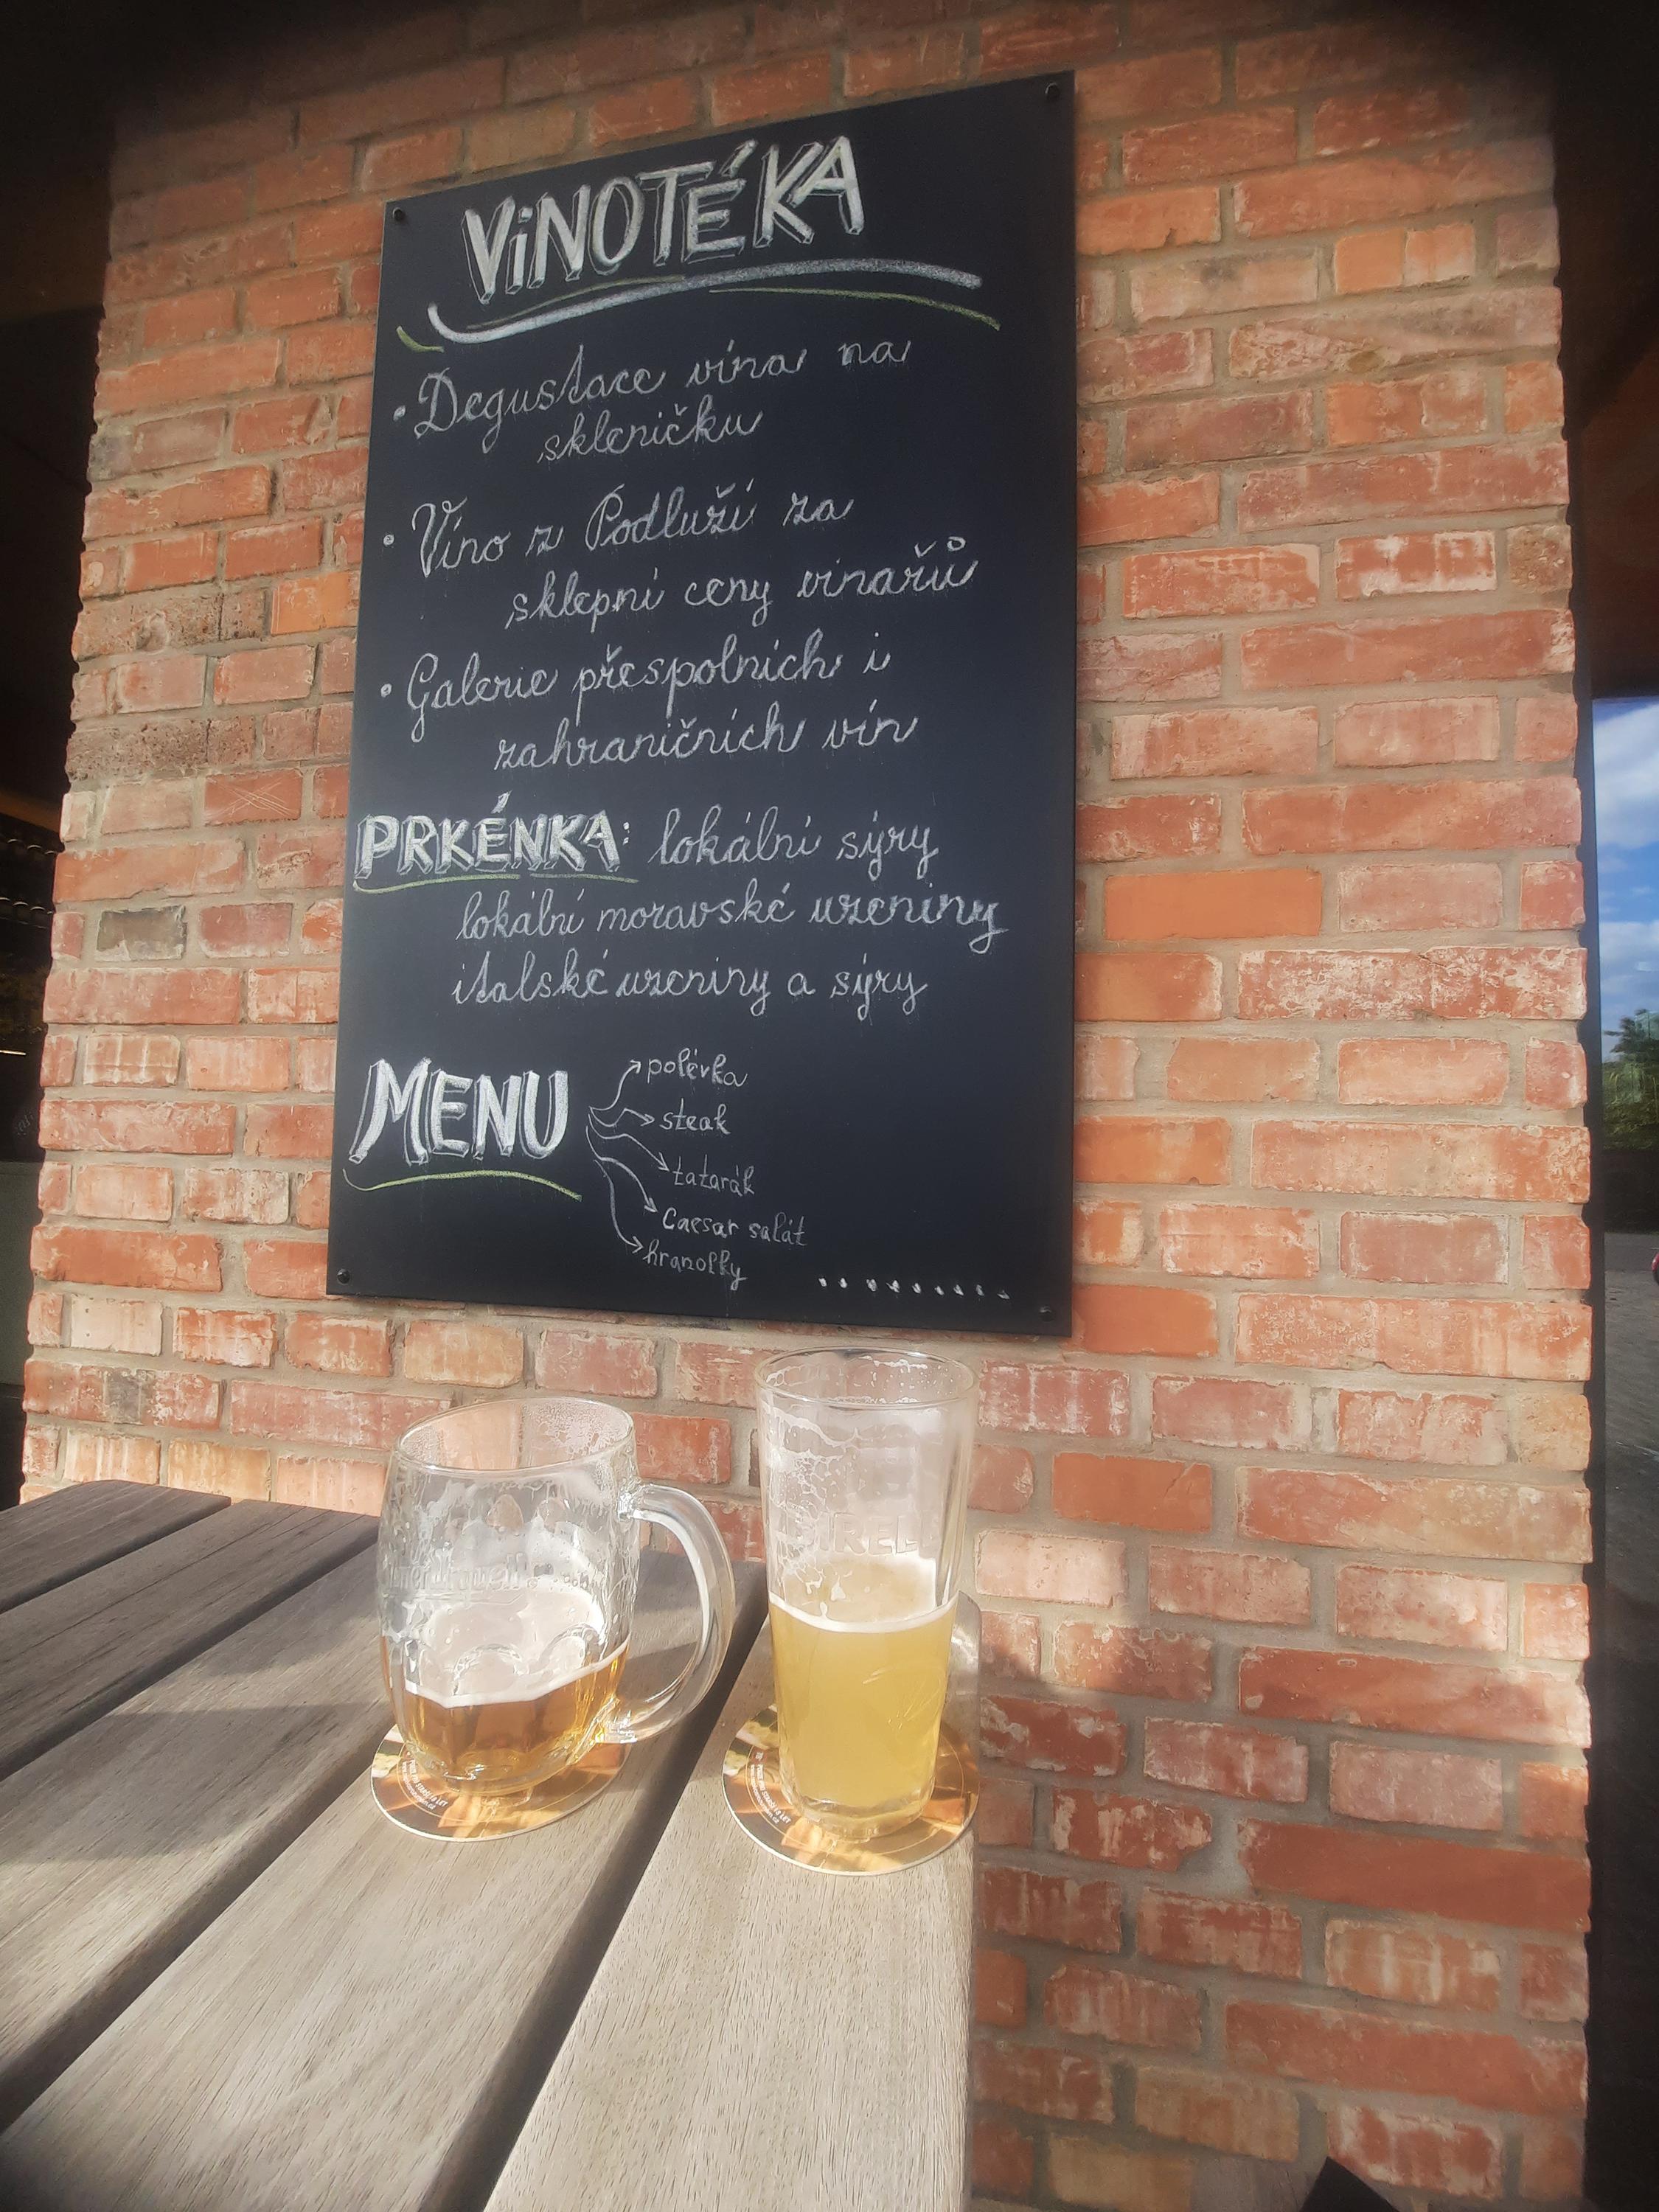 ViNOTÉKA
• Degustace vína na
skleničku
• Víno z Podluží za
sklepní ceny vinařů
• Galerie přespolních i
zahraničních vín
PRKÉNKA: lokální sýry
lokální moravské uzeniny
italské uzeniny a sýry
MENU
polévka
steak
tatarák
Caesar salát
hranolky
BIRELL